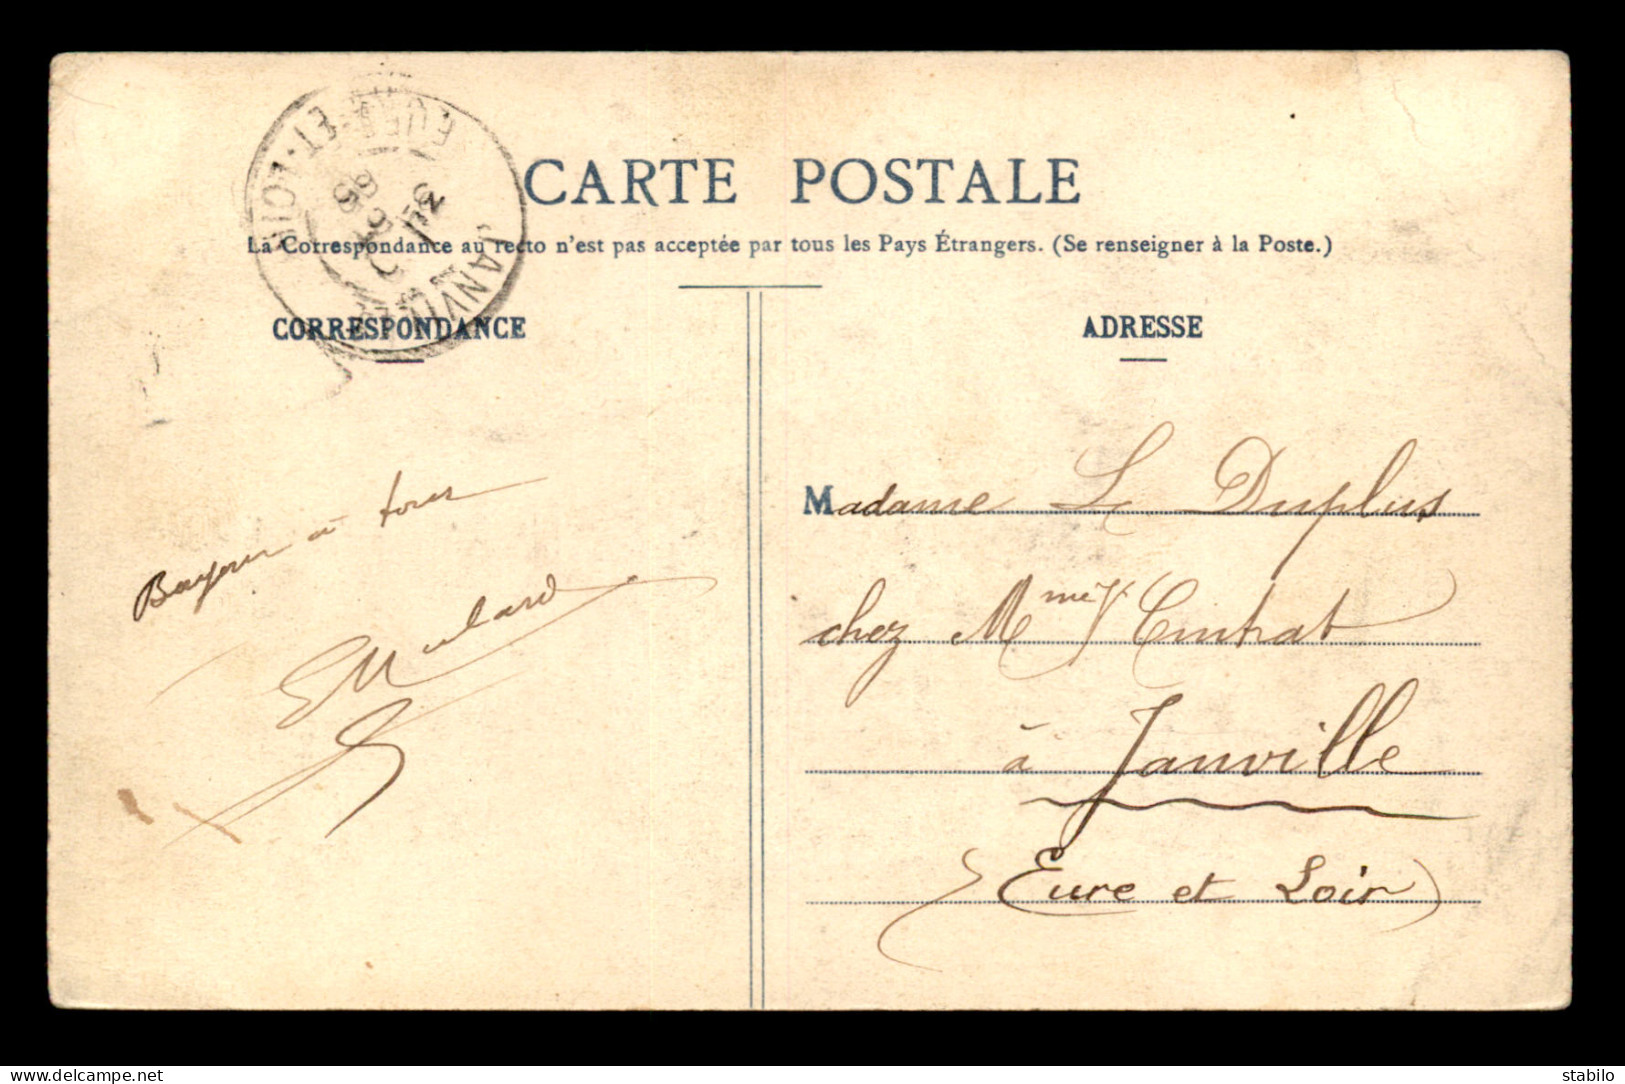 CARTE POSTALE
La Correspondance au recto n'est pas acceptée par tous les Pays Étrangers. (Se renseigner à la Poste.)
CORRESPONDANCE
ADRESSE
JANVILLE
EURE-ET-LOIR
à tous
Madame L Duplus
chez Mme Vve Cintrat
à Janville
(Eure et Loir)
stabilo